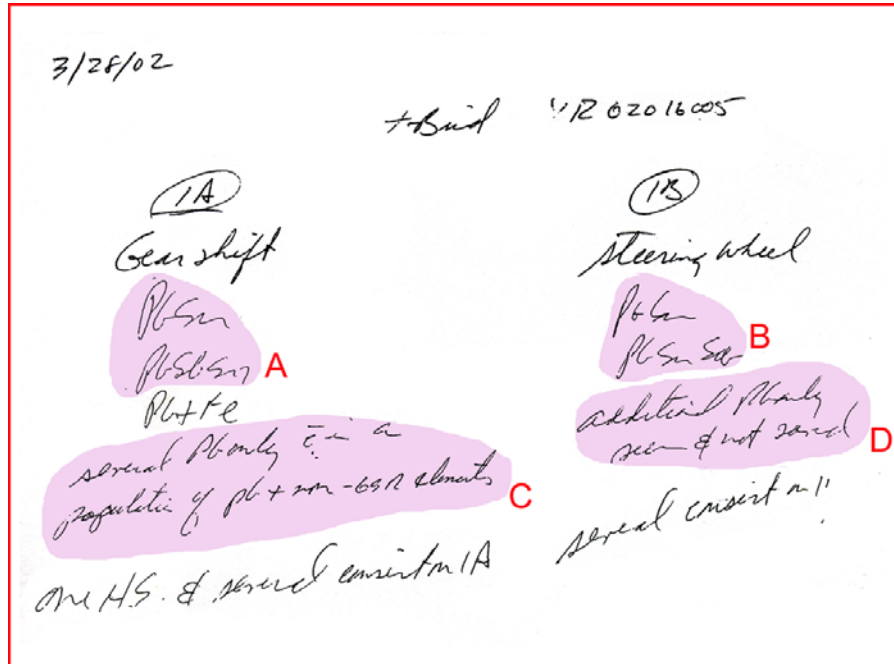 3/28/02
+Bind VR 02016005
1A
Gear shift
PbSn
PbSbSn
A
Pb+Fe
several Pb only c̄ in a
population of pb + non-GSR elements
C
one H.S. & several consist on 1A
1B
steering wheel
PbSn
PbSn
B
additional Pb only
seen & not saved
D
several consist on